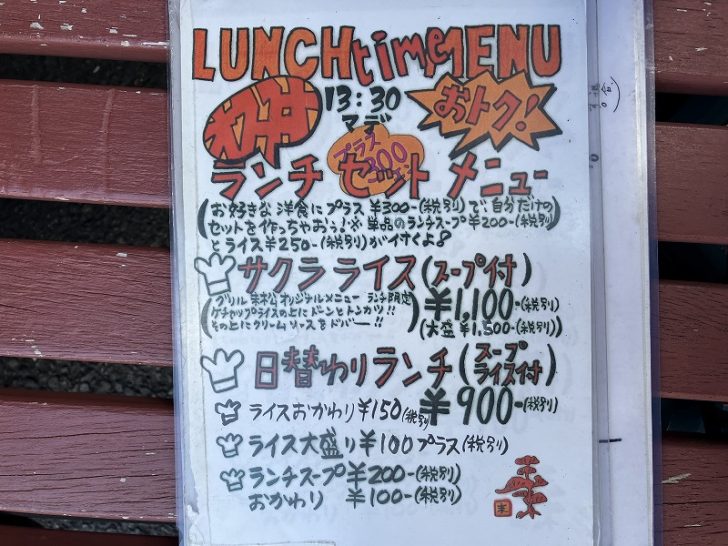 LUNCH time MENU
13:30
マデ
おトク!
プラス
300
ランチ セット メニュー
(お好きな洋食にプラス¥300-(税別)で自分だけの
セットを作っちゃおう!※単品のランチスープ¥200-(税別)
とライス¥250-(税別)が付くよ♪)
サクラライス(スープ付)
(グリル末松オリジナルメニュー ランチ限定
ケチャップライスの上にドーンとトンカツ!!
その上にクリームソースをドバー!!)
¥1,100-(税別)
(大盛¥1,500-(税別))
日替わりランチ(スープ
ライス付)
ライスおかわり¥150(税別)
¥900-(税別)
ライス大盛り¥100プラス(税別)
ランチスープ¥200-(税別)
おかわり ¥100-(税別)
末